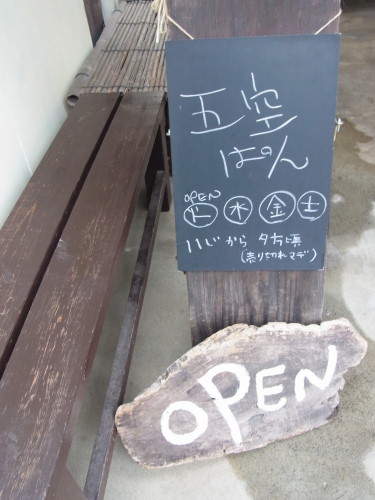 五空
ぱん
OPEN
火 水 金 土
11じから 夕方頃
(売り切れマデ)
OPEN